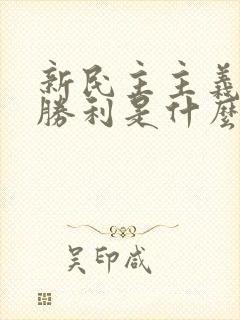 新民主主義
勝利是什麼
吴印咸